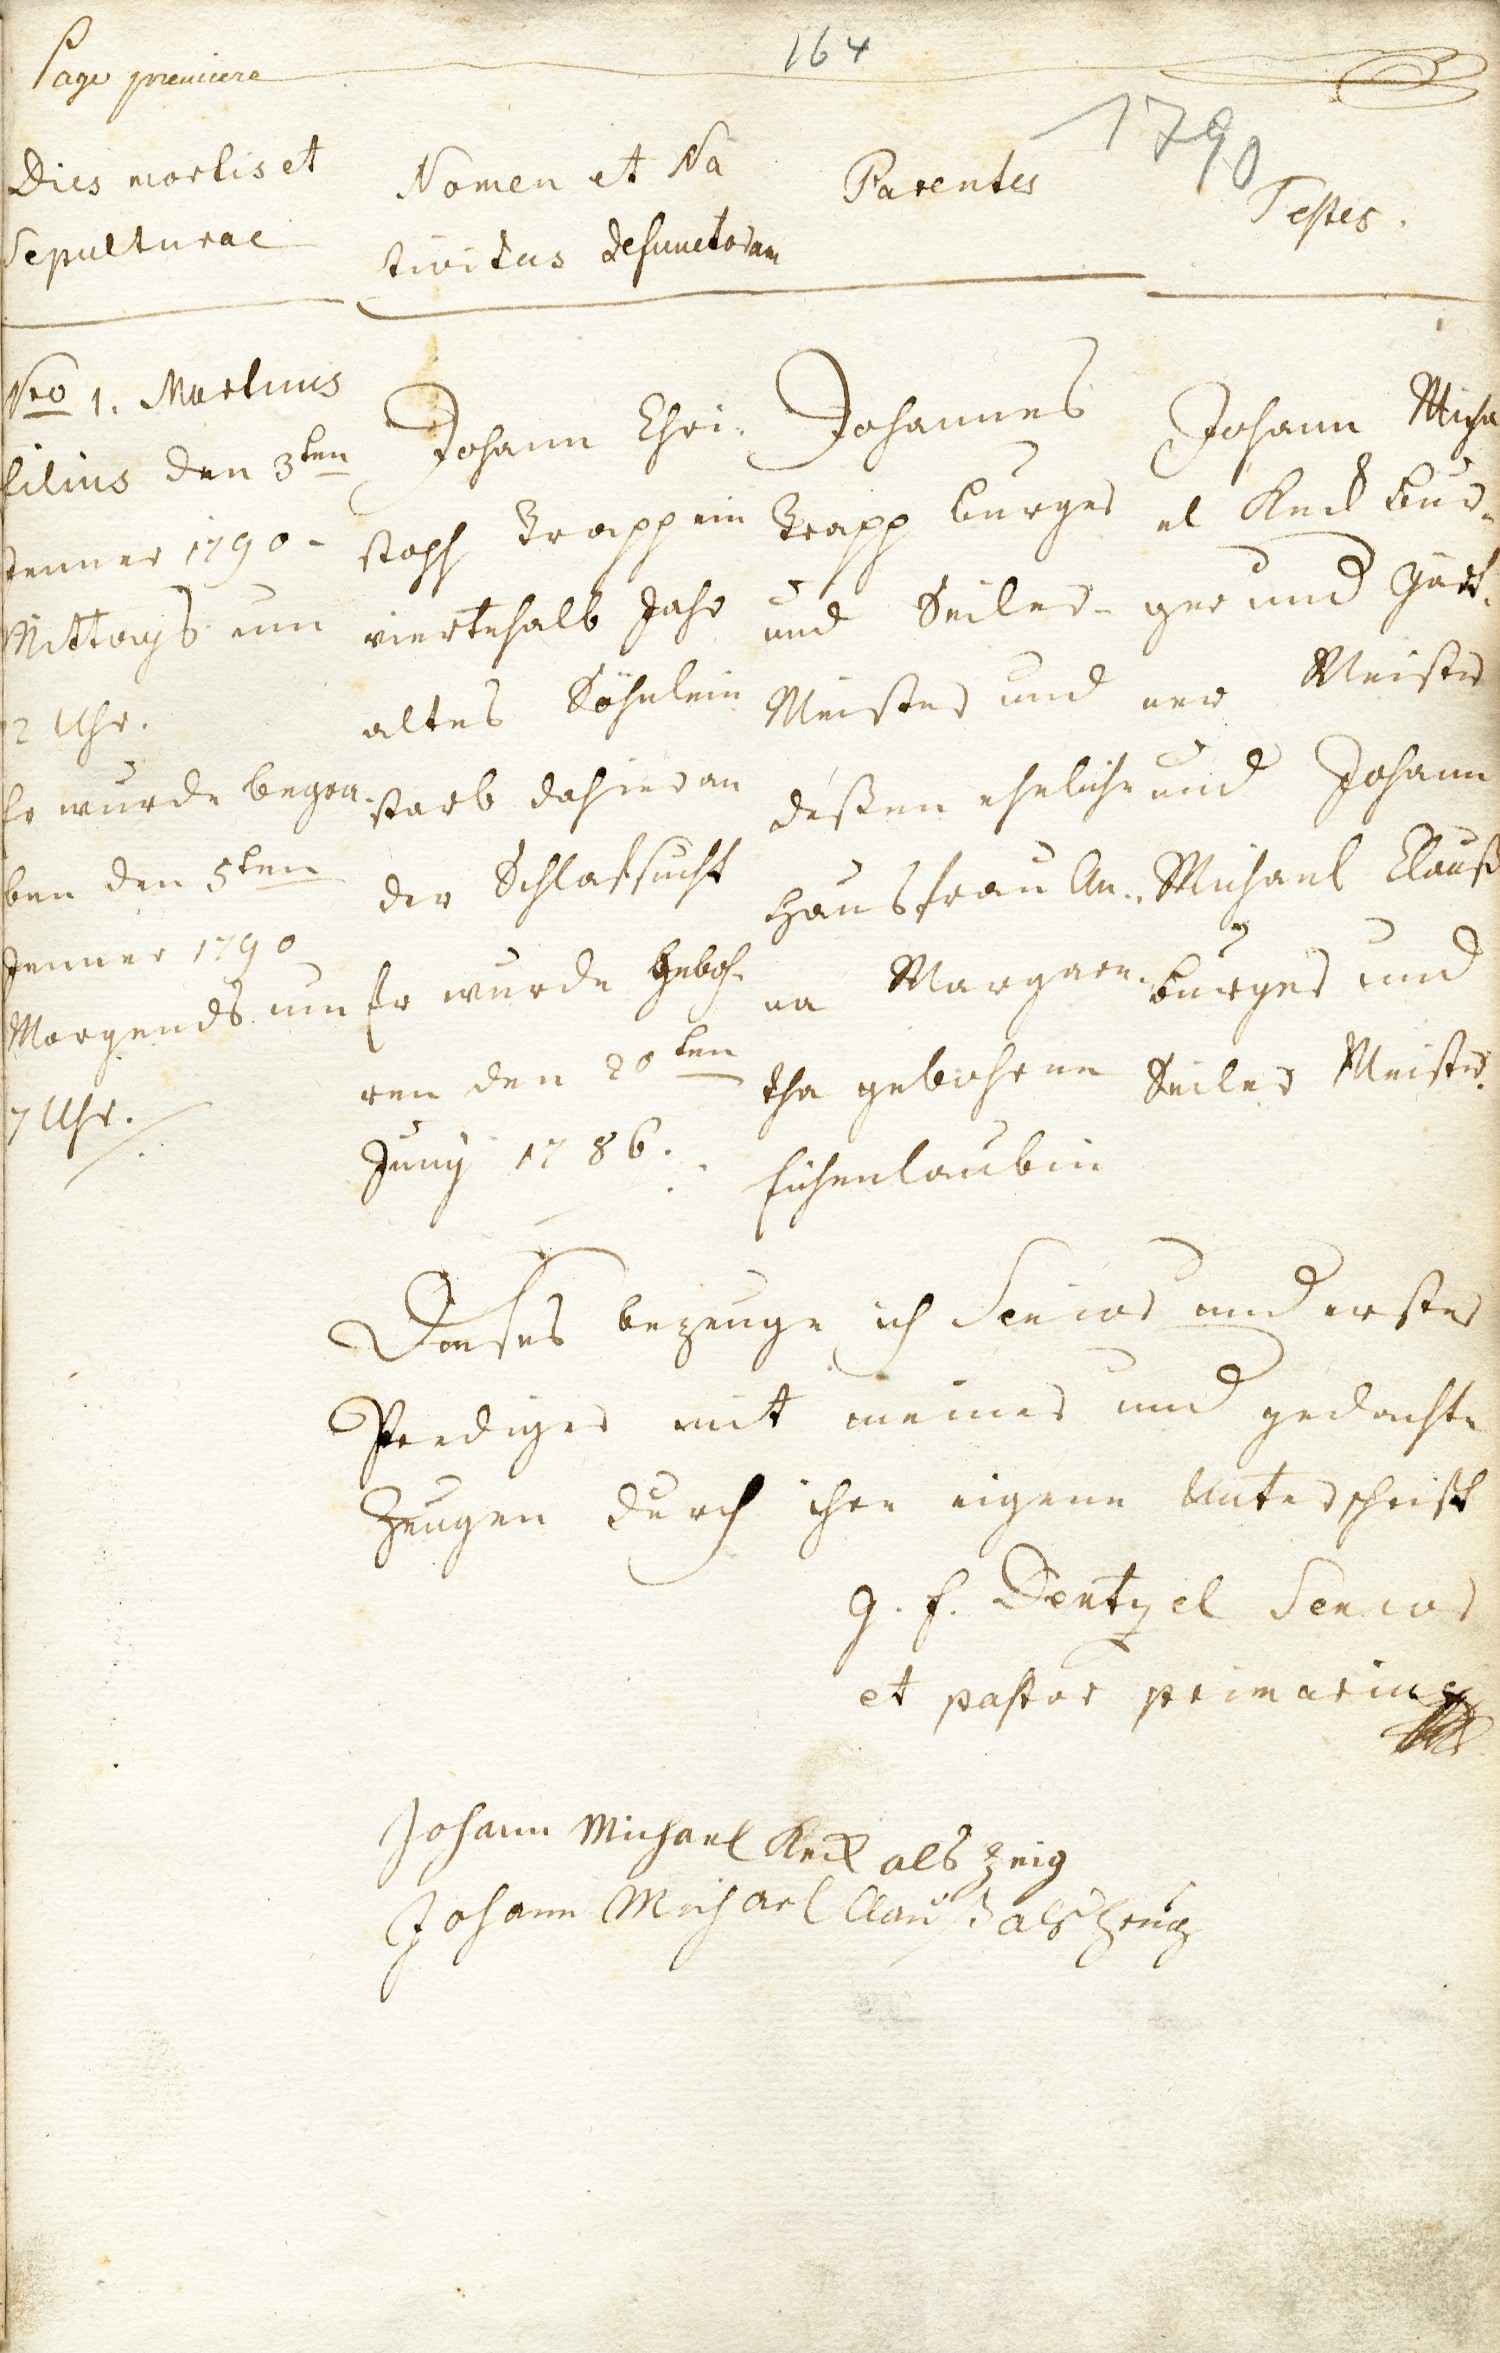 Page premiere
164
1790
Dies mortis et
Sepulturae
Nomen et Na
tivitas defunctorum
Parentes
Testes.
Nro 1. Mortuus
filius den 3ten
Jenner 1790 -
Mittags um
2 Uhr.
Er wurde begra-
ben den 5ten
Jenner 1790
Morgends um
7 Uhr.
Johann Chri-
stoph Trapp ein
viertehalb Jahr
altes Söhnlein
starb dahier an
der Schlafsucht
Er wurde geboh-
ren den 20ten
Juny 1786.
Johannes
Trapp burger
und Seiler-
Meister und
deßen eheliche
Hausfrau An-
na Margare-
tha gebohrne
Eichenlaubin
Johann Micha
el Keck bur-
ger und Gärt-
ner Meister
und Johann
Michael Clauß
burger und
Seiler Meister.
Dieses bezeuge ich Senior und erster
Prediger mit meiner und gedachte
Zeugen durch ihre eigene Unterschrift
G. F. Dentzel Senior
et pastor primarius
Johann Michael Keck als Zeig
Johann Michael Clauß als Zeug